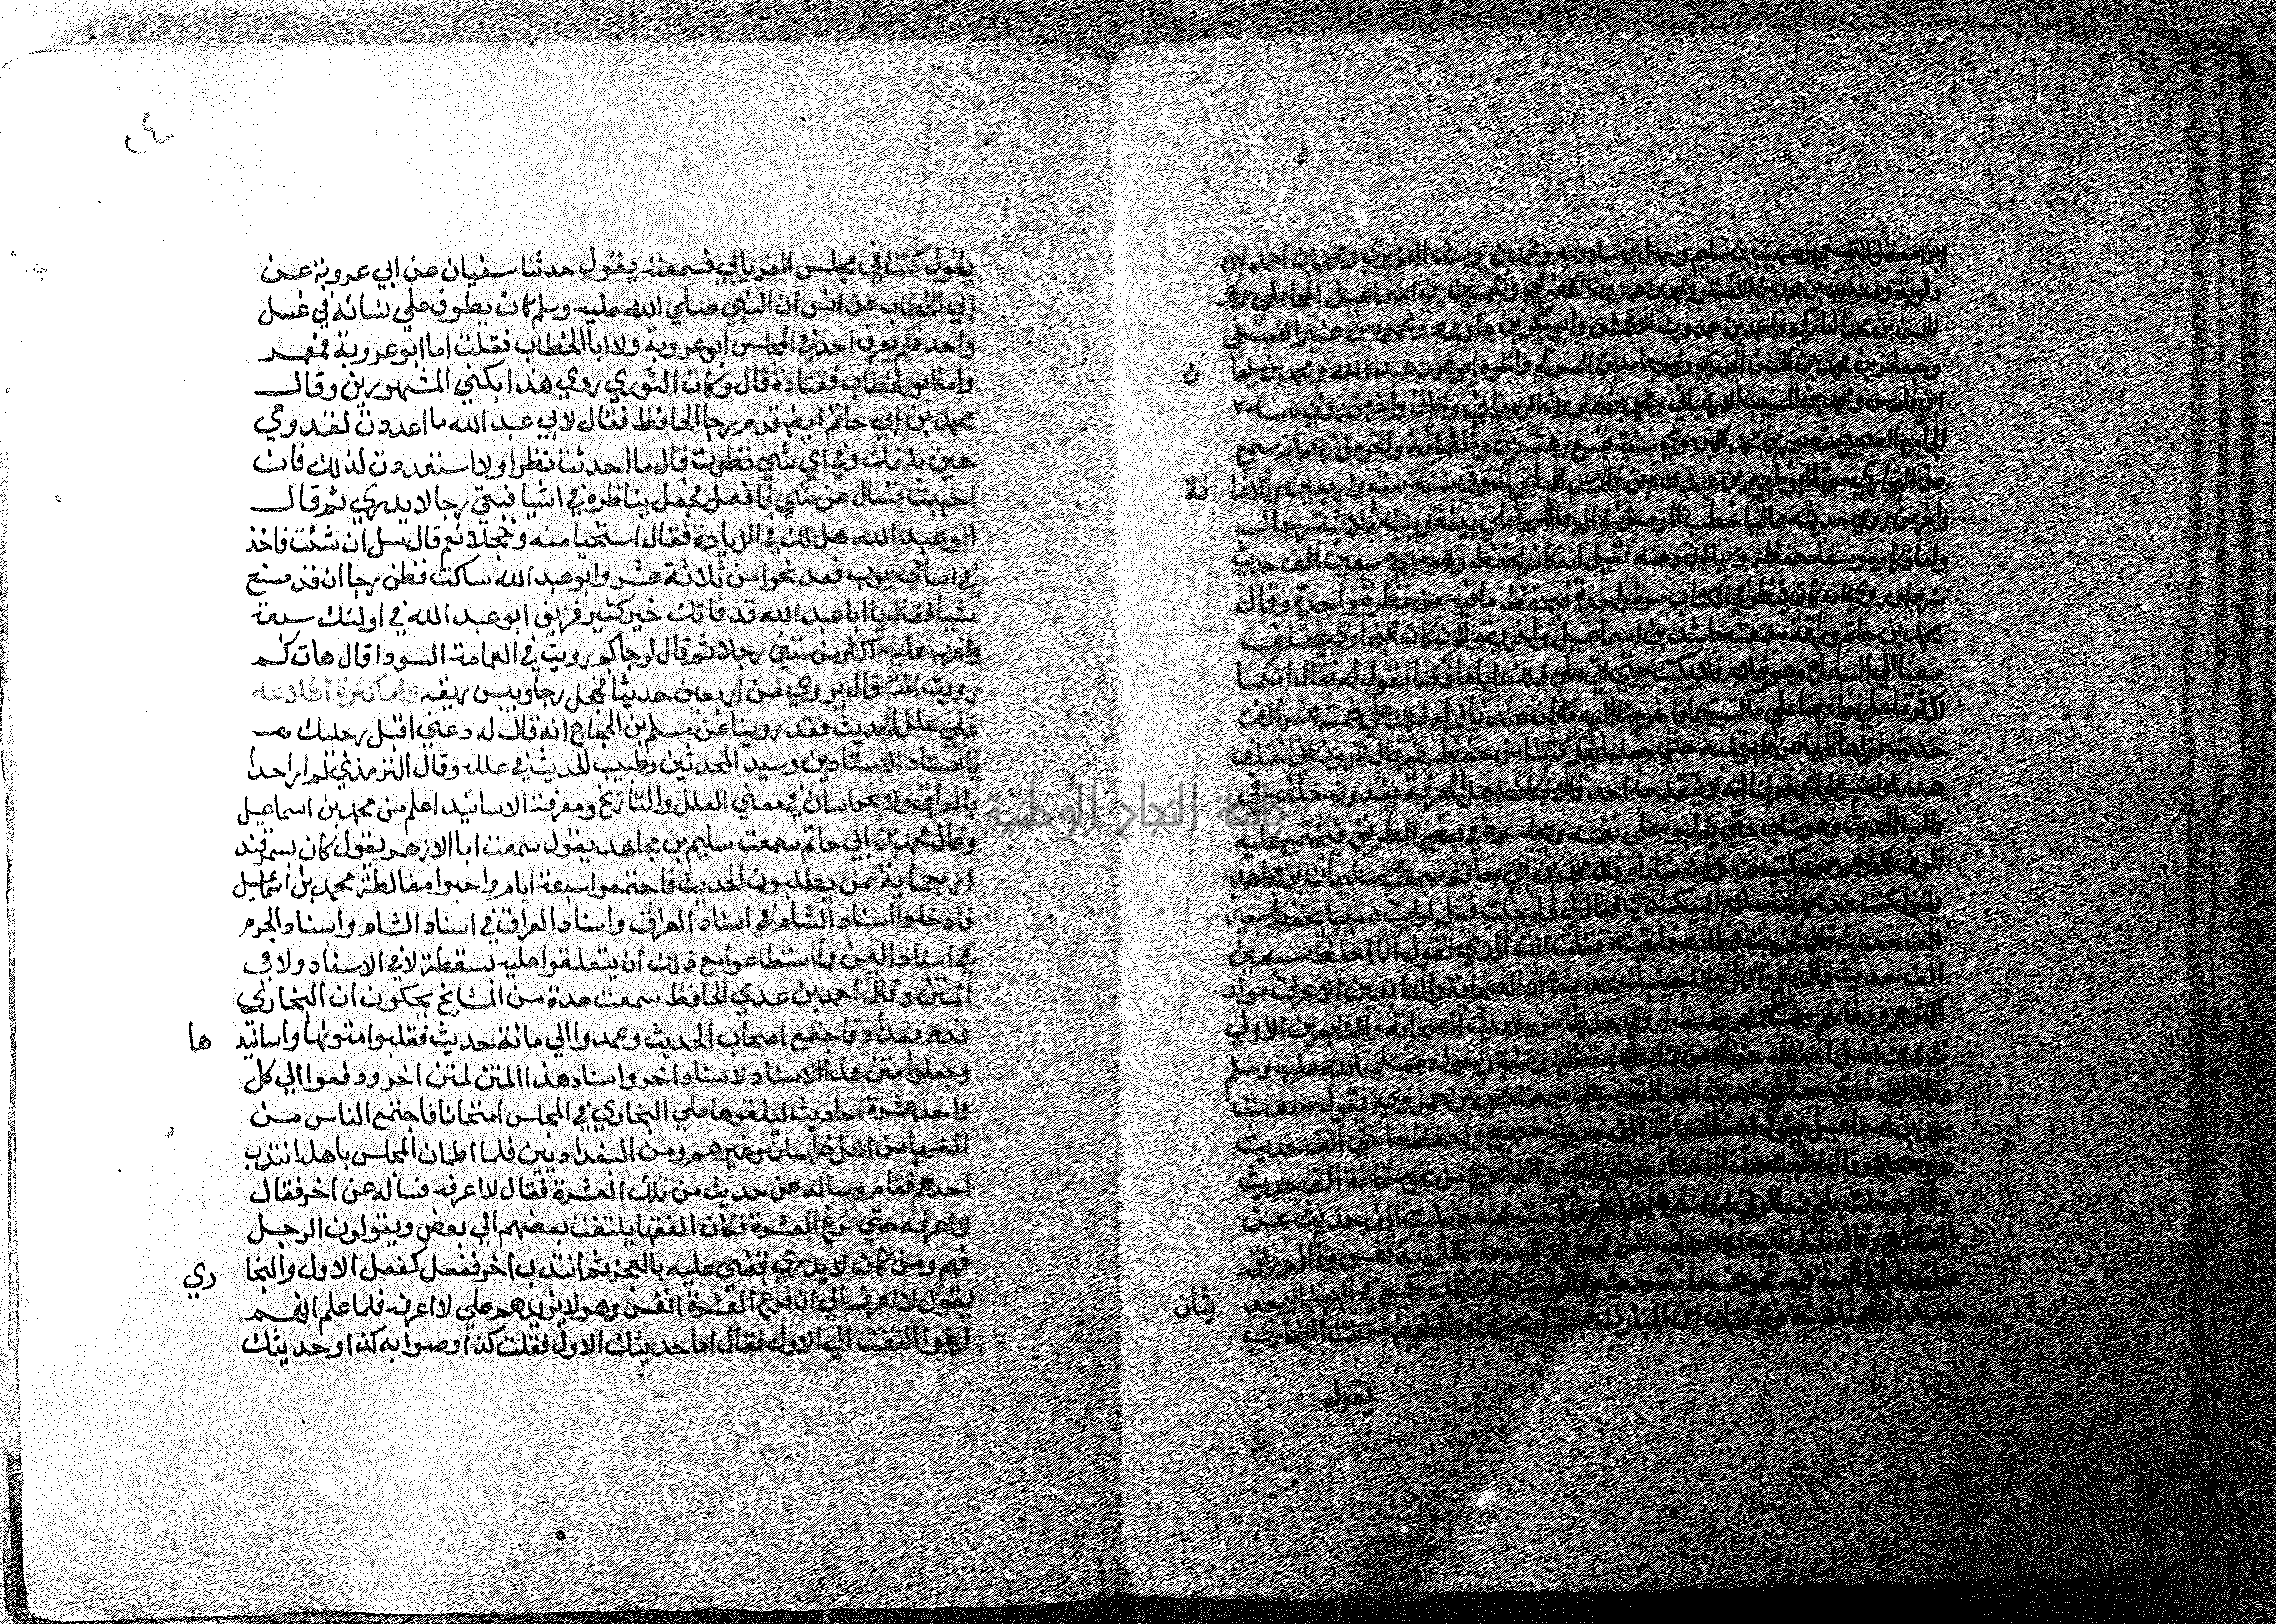 ابن معقل النسفي وصهيب بن سليم وسهل بن شادويه ومحمد بن يوسف الفربري ومحمد بن احمد ابن
دلويه وعبد الله بن محمد بن الاشقر ومحمد بن هارون الحضرمي والحسين بن اسماعيل المحاملي وابو
وجعفر بن محمد بن الحسن الجزري وابو حامد بن الشرقي واخوه ابو محمد عبد الله ومحمد بن سليما ن
ابن فارس ومحمد بن المسيب الارغياني ومحمد بن هارون الروياني وخلق واخر من روي عنه
الجامع الصحيح منصور بن محمد البزدوي سنة تسع وعشرين وثلثمائة واخر من زعم انه سمع
من البخاري موتا ابو ظهير بن عبد الله بن فارس البلخي المتوفي سنة ست واربعين وثلاثما ئة
واخر من روي حديثه عاليا خطيب الموصل في الدعا للمحاملي بينه وبينه ثلاثة رجال
واما ذكاوه وسعة حفظه وسيلان ذهنه فقيل انه كان يحفظ وهو صبي سبعين الف حديث
سردا وروي انه كان ينظر في الكتاب مرة واحدة فيحفظ ما فيه من نظرة واحدة وقال
محمد بن حاتم وراقه سمعت حاشد بن اسماعيل واخر يقولان كان البخاري يختلف
معنا الي السماع وهو غلام فلا يكتب حتي اتي علي ذلك اياما فكنا نقول له فقال انكما
اكثرتما علي فاعرضا علي ما كتبتما فاخرجنا اليه ما كان عندنا فزاد ذلك علي خمسة عشر الف
حديث فقراها كلها عن ظهر قلبه حتي جعلنا نحكم كتبنا من حفظه ثم قال اترون اني اختلف
هدرا واضيع ايامي فعرفنا انه لا يتقدمه احد قالا فكان اهل المعرفة يغدون خلفه في
طلب الحديث وهو شاب حتي يغلبوه علي نفسه ويجلسوه في بعض الطريق فيجتمع عليه
الوف اكثرهم ممن يكتب عنه وكان شابا وقال محمد بن ابي حاتم سمعت سليمان بن مجاهد
يقول كنت عند محمد بن سلام البيكندي فقال لي لو جئت قبل لرايت صبيا يحفظ سبعين
الف حديث قال فخرجت في طلبه فلقيته فقلت انت الذي تقول انا احفظ سبعين
الف حديث قال نعم واكثر ولا اجيبك بحديث عن الصحابة والتابعين الا عرفت مولد
اكثرهم ووفاتهم ومساكنهم ولست اروي حديثا من حديث الصحابة والتابعين الا ولي
في ذلك اصل احفظ حفظا عن كتاب الله تعالي وسنة رسوله صلي الله عليه وسلم
وقال ابن عدي حدثني محمد بن احمد القومسي سمعت محمد بن حمرويه يقول سمعت
محمد بن اسماعيل يقول احفظ مائة الف حديث صحيح واحفظ مائتي الف حديث
غير صحيح وقال اخرجت هذا الكتاب يعني الجامع الصحيح من نحو ستمائة الف حديث
وقال دخلت بلخ فسالوني ان املي عليهم لكل من كتبت عنه فامليت الف حديث عن
الف شيخ وقال تذكرت يوما في اصحاب انس فحضرني في ساعة ثلثمائة نفس وقال وراقه
عمل كتابا في الهبة فيه نحو خمسمائة حديث وقال ليس في كتاب وكيع في الهبة الا حد يثان
مسندان او ثلاثة وفي كتاب ابن المبارك خمسة او نحوها وقال ايضا سمعت البخاري
يقول
٤
يقول كنت في مجلس الفريابي فسمعته يقول حدثنا سفيان عن ابي عروبة عن
ابي الخطاب عن انس ان النبي صلي الله عليه وسلم كان يطوف علي نسائه في غسل
واحد فلم يعرف احد في المجلس ابو عروبة ولا ابا الخطاب فقلت اما ابو عروبة فمعمر
واما ابو الخطاب فقتادة قال وكان الثوري روي هذا بكني المشهورين وقال
محمد بن ابي حاتم ايضا قدم رجا الحافظ فقال لابي عبد الله ما اعددت لقدومي
حين بلغك وفي اي شي نظرت قال ما احدثت نظرا ولا استعددت لذلك فان
احببت تسال عن شي فافعل فجعل يناظره في اشيا فبقي رجا لا يدري ثم قال
ابو عبد الله هل لك في الزيادة فقال استحيا منه وخجلا نعم قال سل ان شئت فاخذ
في اسامي ايوب فعد نحوا من ثلاثة عشر وابو عبد الله ساكت فظن رجا ان قد صنع
شيا فقال يا ابا عبد الله قد فاتك خير كثير فزيف ابو عبد الله في اولئك سبعة
واغرب عليه اكثر من ستين رجلا ثم قال لرجا كم رويت في العمامة السودا قال هات كم
رويت انت قال يروي من اربعين حديثا فخجل رجا ويبس ريقه واما كثرة اطلاعه
علي علل الحديث فقد روينا عن مسلم بن الحجاج انه قال له دعني اقبل رجليك
يا استاد الاستادين وسيد المحدثين وطبيب الحديث في علله وقال الترمذي لم ار احدا
بالعراق ولا بخراسان في معني العلل والتاريخ ومعرفة الاسانيد اعلم من محمد بن اسماعيل
وقال محمد بن ابي حاتم سمعت سليم بن مجاهد يقول سمعت ابا الازهر يقول كان بسمرقند
اربعماية ممن يطلبون الحديث فاجتمعوا سبعة ايام واحبوا مغالطة محمد بن اسماعيل
فادخلوا اسناد الشام في اسناد العراق واسناد العراق في اسناد الشام واسناد الحرم
في اسناد اليمن فما استطاعوا مع ذلك ان يتعلقوا عليه بسقطة لا في الاسناد ولا في
المتن وقال احمد بن عدي الحافظ سمعت عدة من المشايخ يحكون ان البخاري
قدم بغداد فاجتمع اصحاب الحديث وعمدوا الي مائة حديث فقلبوا متونها واسانيد ها
وجعلوا متن هذا الاسناد لاسناد اخر واسناد هذا المتن لمتن اخر ودفعوا الي كل
واحد عشرة احاديث ليلقوها علي البخاري في المجلس امتحانا فاجتمع الناس من
الغربا من اهل خراسان وغيرهم ومن البغداديين فلما اطمان المجلس باهله انتدب
احدهم فقام وساله عن حديث من تلك العشرة فقال لا اعرفه فساله عن اخر فقال
لا اعرفه حتي فرغ العشرة فكان الفقها يلتفت بعضهم الي بعض ويقولون الرجل
فهم ومن كان لا يدري قضي عليه بالعجز ثم انتدب اخر ففعل كفعل الاول والبخا ري
يقول لا اعرفه الي ان فرغ العشرة انفس وهو لا يزيدهم علي لا اعرفه فلما علم انهم
فرغوا التفت الي الاول فقال اما حديثك الاول فقلت كذا وصوابه كذا وحديثك
جامعة النجاح الوطنية